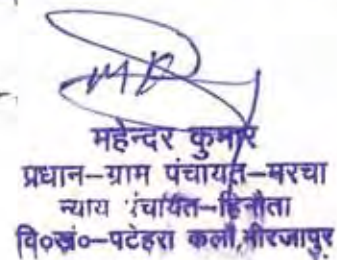 महेन्दर कुमार
प्रधान–ग्राम पंचायत–मरचा
न्याय पंचायत–हिनौता
वि०खं०–पटेहरा कलाँ,मीरजापुर